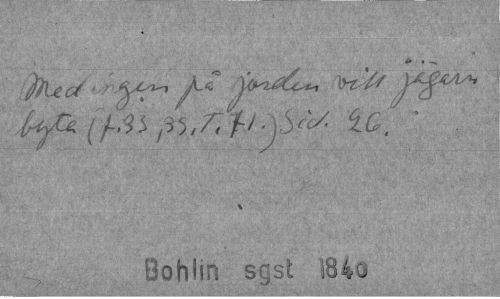 Med ingen på jorden vill jägarn
byta (f.33, 39. T. 71.) Sid. 26.
Bohlin sgst 1840